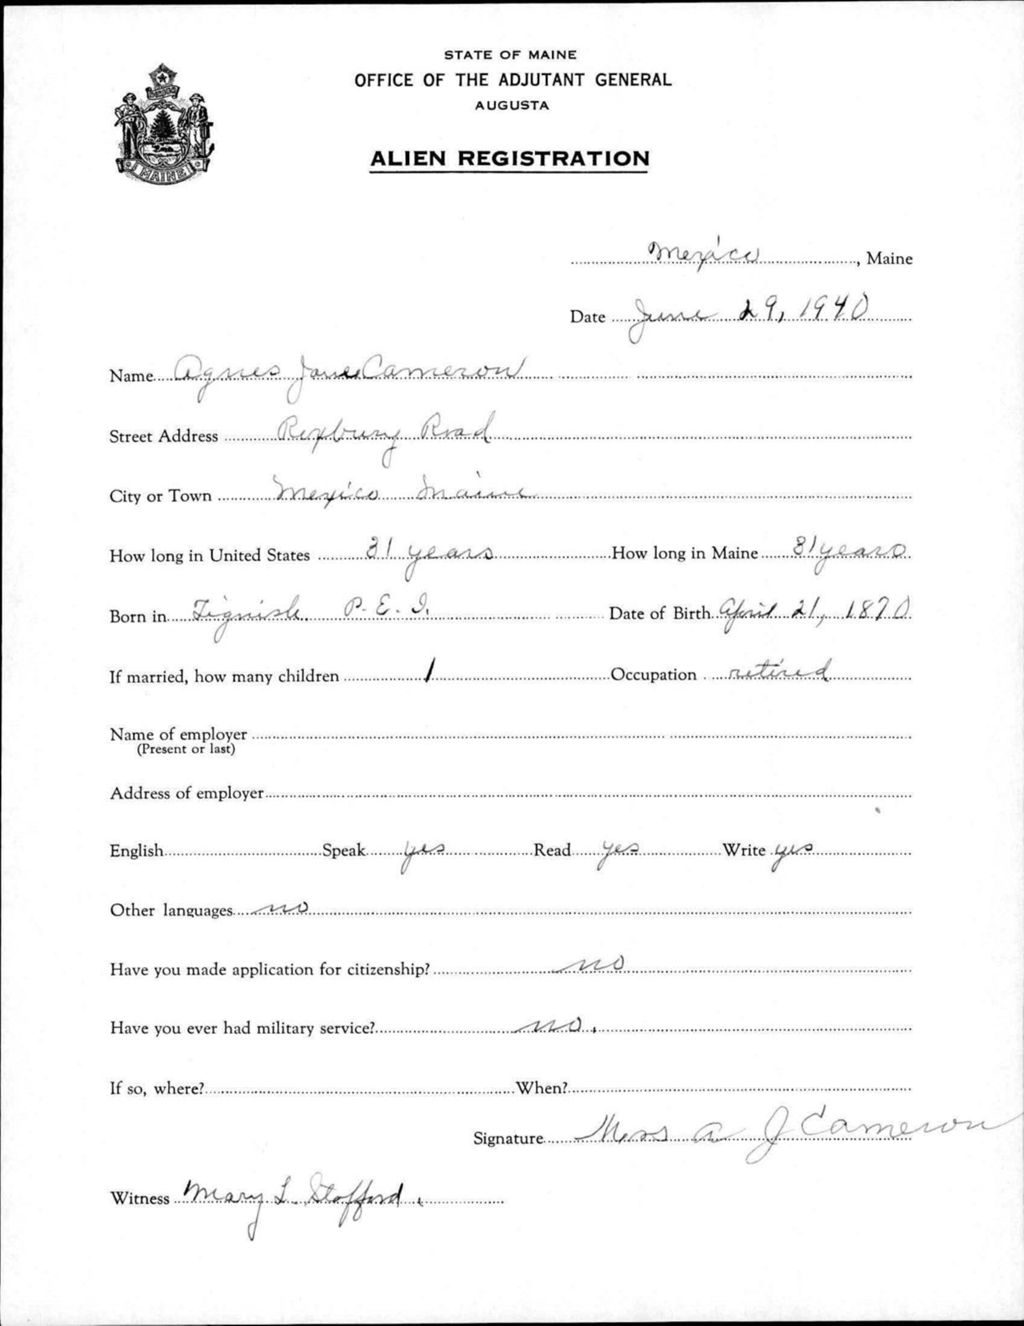 STATE OF MAINE
OFFICE OF THE ADJUTANT GENERAL
AUGUSTA
ALIEN REGISTRATION
MAINE
Mexico, Maine
Date June 29, 1940
Name Agnes Jane Cameron
Street Address Roxbury Road
City or Town Mexico Maine
How long in United States 31 years How long in Maine 31 years
Born in Tignish. P.E.I. Date of Birth April 21, 1870
If married, how many children 1 Occupation retired
Name of employer
(Present or last)
Address of employer
English Speak yes Read yes Write yes
Other languages no
Have you made application for citizenship? no
Have you ever had military service? no.
If so, where? When?
Signature Mrs A J Cameron
Witness Mary L. Stafford.